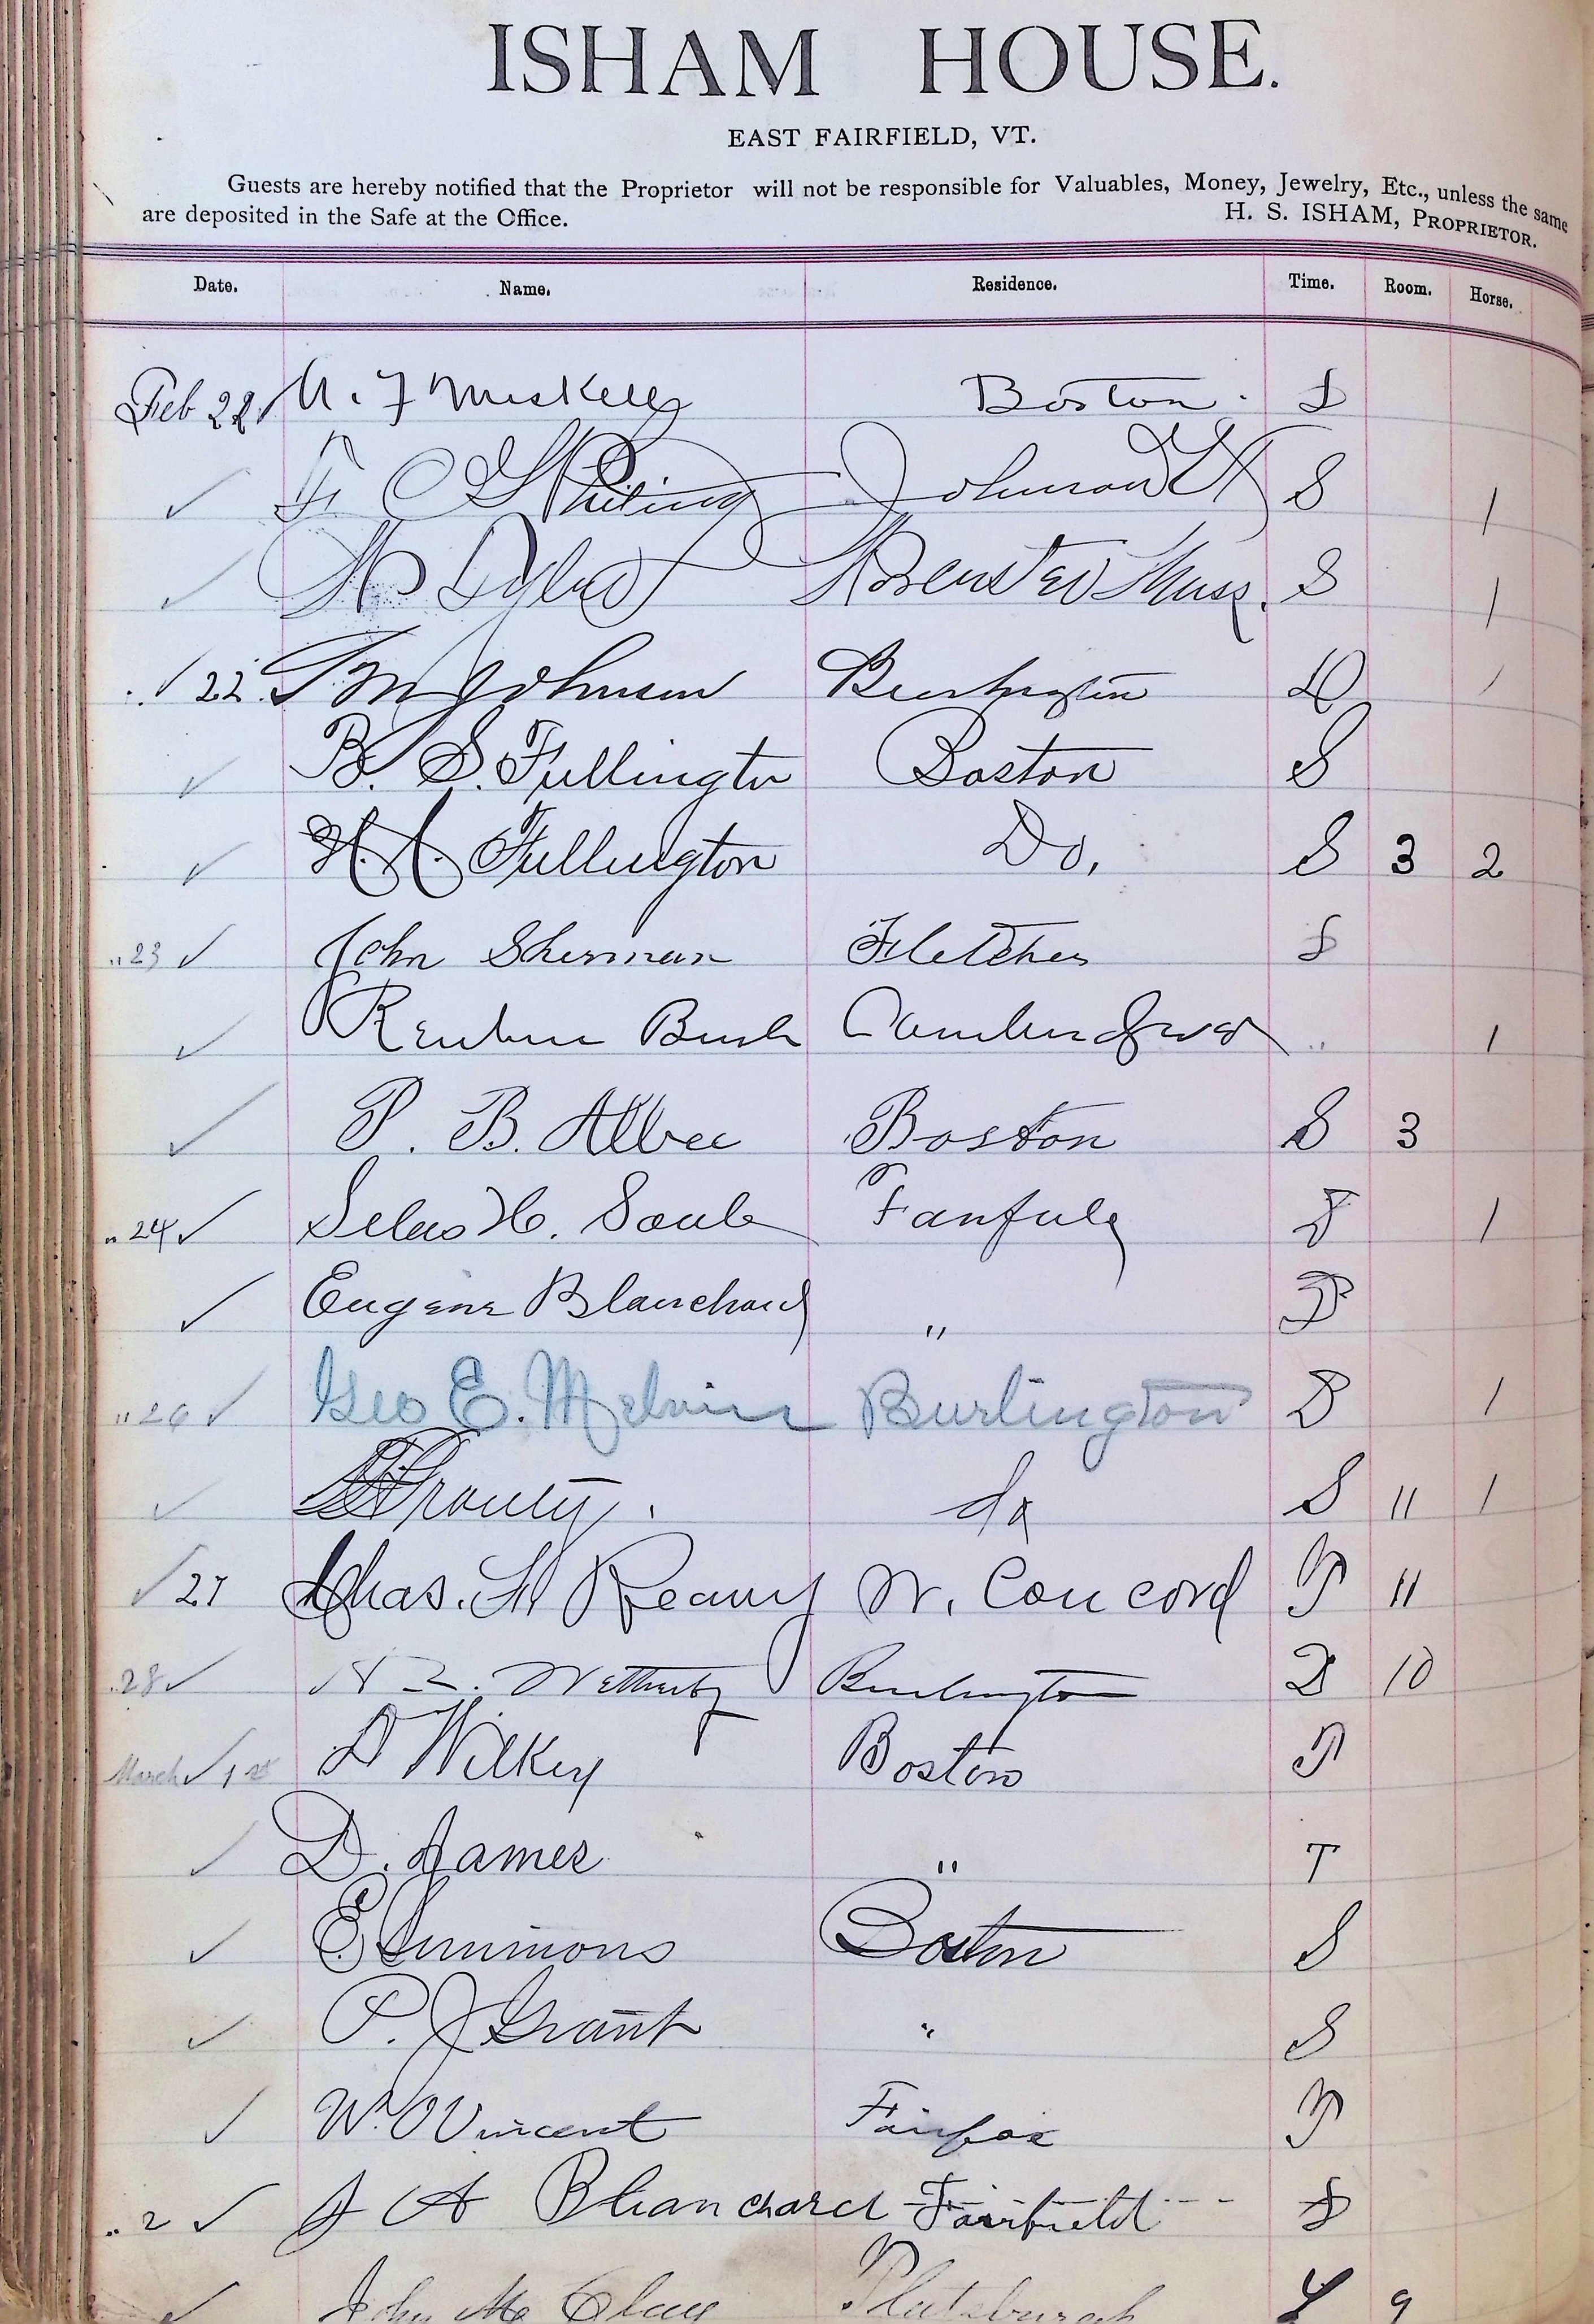 ISHAM HOUSE.
EAST FAIRFIELD, VT.
Guests are hereby notified that the Proprietor will not be responsible for Valuables, Money, Jewelry, Etc., unless the same
are deposited in the Safe at the Office.
H. S. ISHAM, PROPRIETOR.
Date. Name. Residence. Time. Room. Horse.
Feb 22 Boston.
F. C Whiting Johnson Vt S 1
S 1
22 Johnson Burlington D 1
B. S. Fullington Boston S
H. A. Fullington Do. S 3 2
" 23 John Sherman Fletcher
Reuben Bush .. 1
P. B. Albee Boston S 3
" 24 Silas H. Soule 1
Eugene Blanchard "
" 26 Geo E. Melvin Burlington D 1
Prouty. do S 11 1
27 Chas. W. Concord 11
28 Burlington 10
March 1st D Wilkey Boston
D. James " T
E. Simmons Boston S
P. J Grant " S
W. O Vincent Fairfax
.. 2 J A Blanchard Fairfield
John Mc Plattsburgh 9